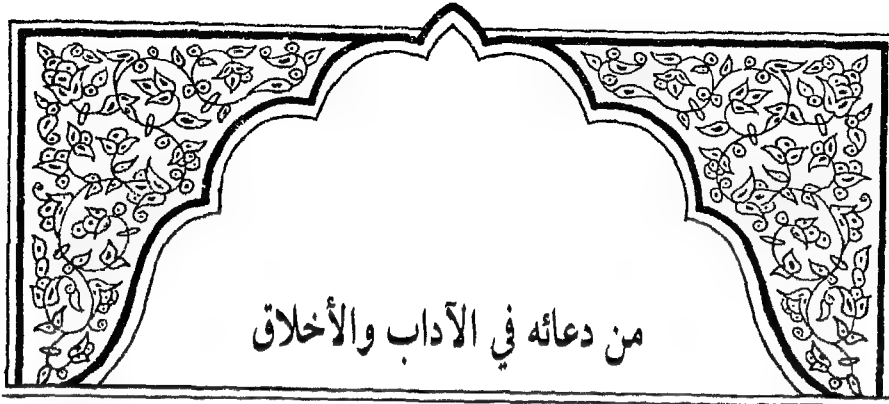 من دعائه في الآداب والأخلاق